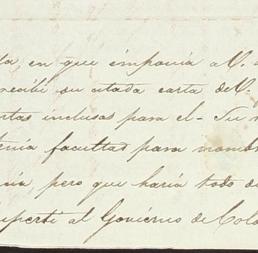 en que imponia a V.
recibi su citada carta de V.
inclusas para el - Su
tenia facultas para nombr
pero que haria todo
al Govierno de Colo